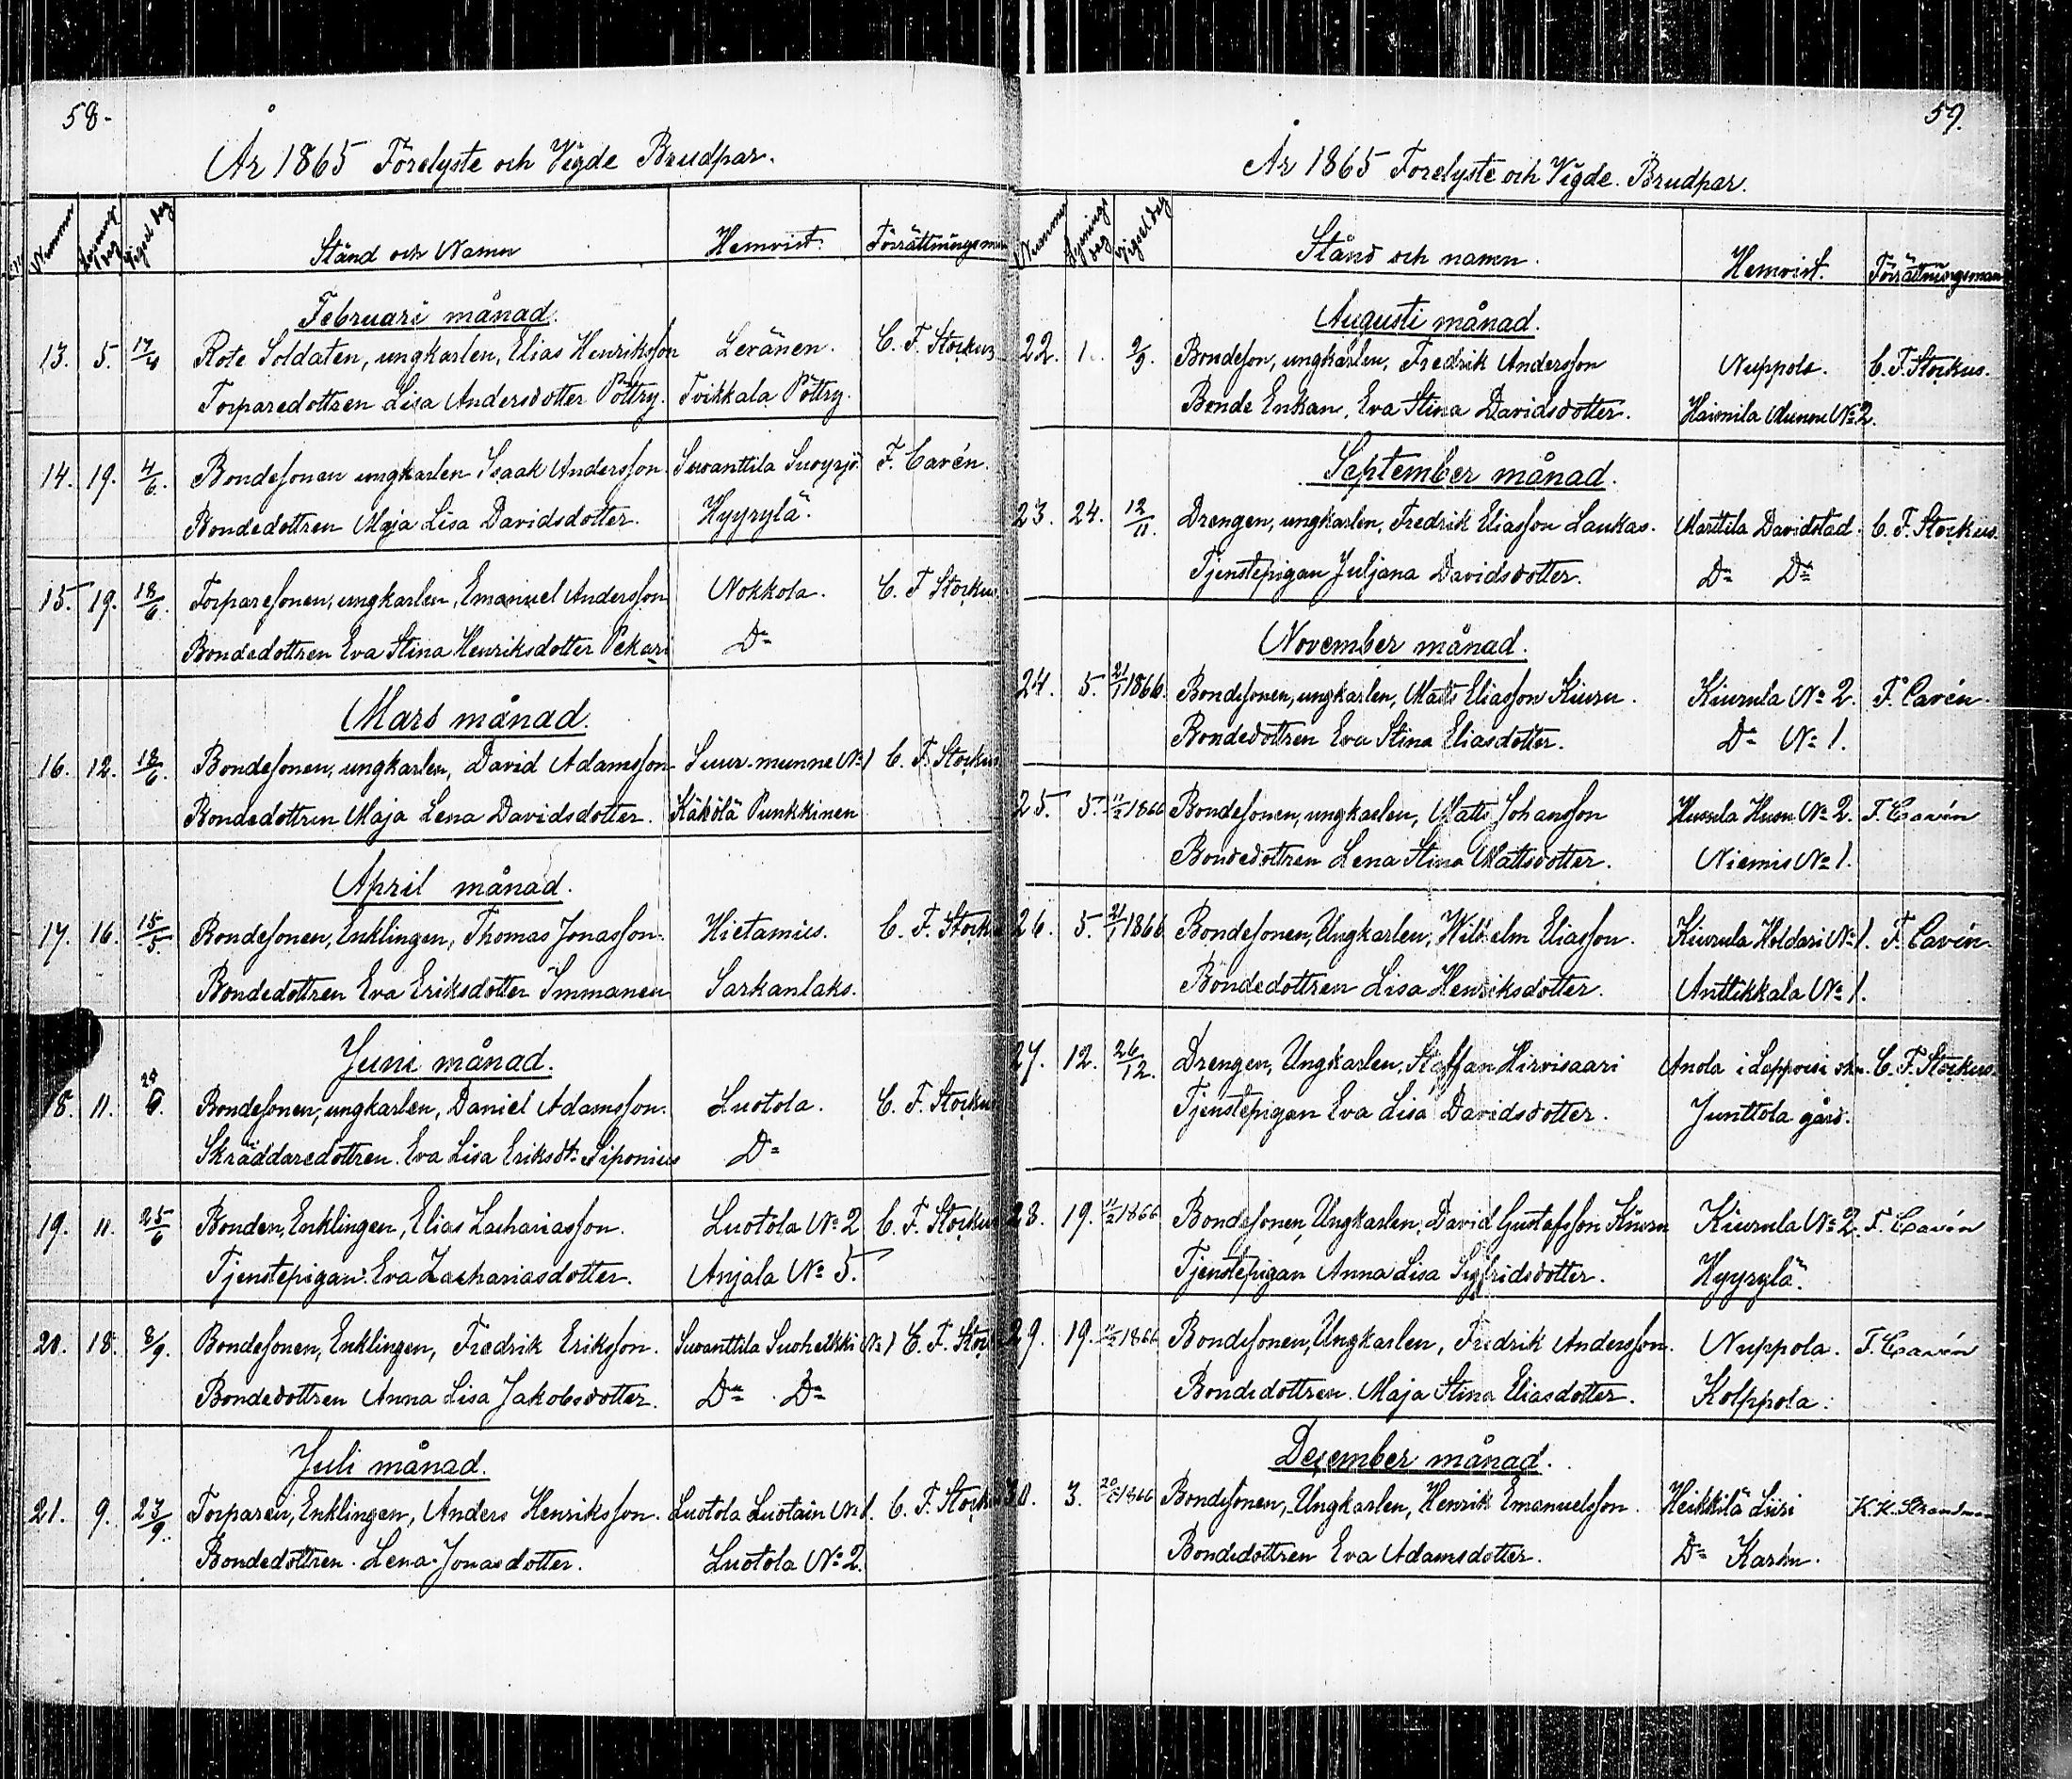 58.
År 1865 Förelyste och Vigde Brudpar.
Nummer Lysnings dag Vigsel dag Stånd och Namn Hemvist. Förrättningsman
Februari månad.
13. 5. 17/4 Rote Soldaten, ungkarlen, Elias Henriksson Leränen. C. F. Storkus
Torparedottren Lisa Andersdotter Pöttry. Toikkala Pöttry.
14. 19. 4/6. Bondesonen ungkarlen Isaak Andersson. Suvanttila F. Cavén.
Bondedottren Maja Lisa Davidsdotter. Hyyrylä.
15. 19. 18/6. Torparesonen, ungkarlen, Emanuel Andersson Nokkola. C. F Storkus
Bondedottren Eva Stina Henriksdotter Pekari D:o
Mars månad.
16. 12. 18/6. Bondesonen, ungkarlen, David Adamsson Suur-munne No 1 C. F. Storkus
Bondedottren Maja Lena Davidsdotter. Käkölä Punkkinen
April månad.
17. 16. 15/5. Bondesonen, Enklingen, Thomas Jonasson. Hietamies. C. F. Storkus
Bondedottren Eva Eriksdotter Immanen Sarkanlaks.
Juni månad.
18. 11. Bondesonen, ungkarlen, Daniel Adamsson. Luotola. C. F. Storkus
Skräddaredottren. Eva Lisa Eriksdt: Siponius D:o
19. 11. 25/6 Bonden, Enklingen, Elias Zachariasson. Luotola No 2 C. F. Storkus
Tjenstepigan Eva Zachariasdotter. Anjala No 5.
20. 18. 8/9. Bondesonen, Enklingen, Fredrik Eriksson. Suvanttila Suoheikki No 1 C. F. Stor
Bondedottren Anna Lisa Jakobsdotter. D:o D:o
Juli månad.
21. 9. 23/9. Torparen, Enklingen, Anders Henriksson. Luotola Luotain No 1. C. F. Storkus
Bondedottren. Lena Jonasdotter. Luotola No 2.
59.
År 1865 Förelyste och Vigde. Brudpar.
Nummer Lysnings dag Vigsel dag Stånd och namn. Hemvist. Förrättningsman
Augusti månad.
22. 1. 2/9. Bondeson, ungkarlen, Fredrik Andersson Nuppola. C. F. Storkus.
Bonde Enkan, Eva Stina Davidsdotter. Haimila Munne No 2.
September månad.
23. 24. 12/11. Drengen, ungkarlen, Fredrik Eliasson Laukas. Marttila Davidstad. C. F. Storkus.
Tjenstepigan Juljana Davidsdotter. D:o D:o
November månad.
24. 5. 21/1 1866. Bondesonen, ungkarlen, Matts Eliasson Kiuru. Kiurula No 2. F. Cavén.
Bondedottren Eva Stina Eliasdotter. D:o No 1.
25. 5. 11/2 1866 Bondesonen, ungkarlen, Matts Johansson Husula Husu No 2. F. Cavén
Bondedottren Lena Stina Mattsdotter. Niemis No 1.
26. 5. 21/1 1866 Bondesonen, Ungkarlen, Wilhelm Eliasson. Kiurula Holdari No 1. F. Cavén.
Bondedottren Lisa Henriksdotter. Anttikkala No 1.
27. 12. 26/12. Drengen, Ungkarlen, Staffan Hirvisaari Anola i Lappvesi skn. C. F. Storkus.
Tjenstepigan Eva Lisa Davidsdotter. Junttola gård.
28. 19. 11/2 1866 Bondesonen, Ungkarlen, David Gustafsson Kiuru Kiurula No 2. F. Cavén
Tjenstepigan Anna Lisa Sigfridsdotter. Hyyrylä.
29. 19. 11/2 1866 Bondesonen, Ungkarlen, Fredrik Andersson. Nuppola. F. Cavén
Bondedottren. Maja Stina Eliasdotter. Kolppola.
December månad.
30. 3. 1866 Bondesonen, Ungkarlen, Henrik Emanuelsson. Heikkilä Liisi K. K. Strandman
Bondedottren Eva Adamsdotter. D:o Karhu.